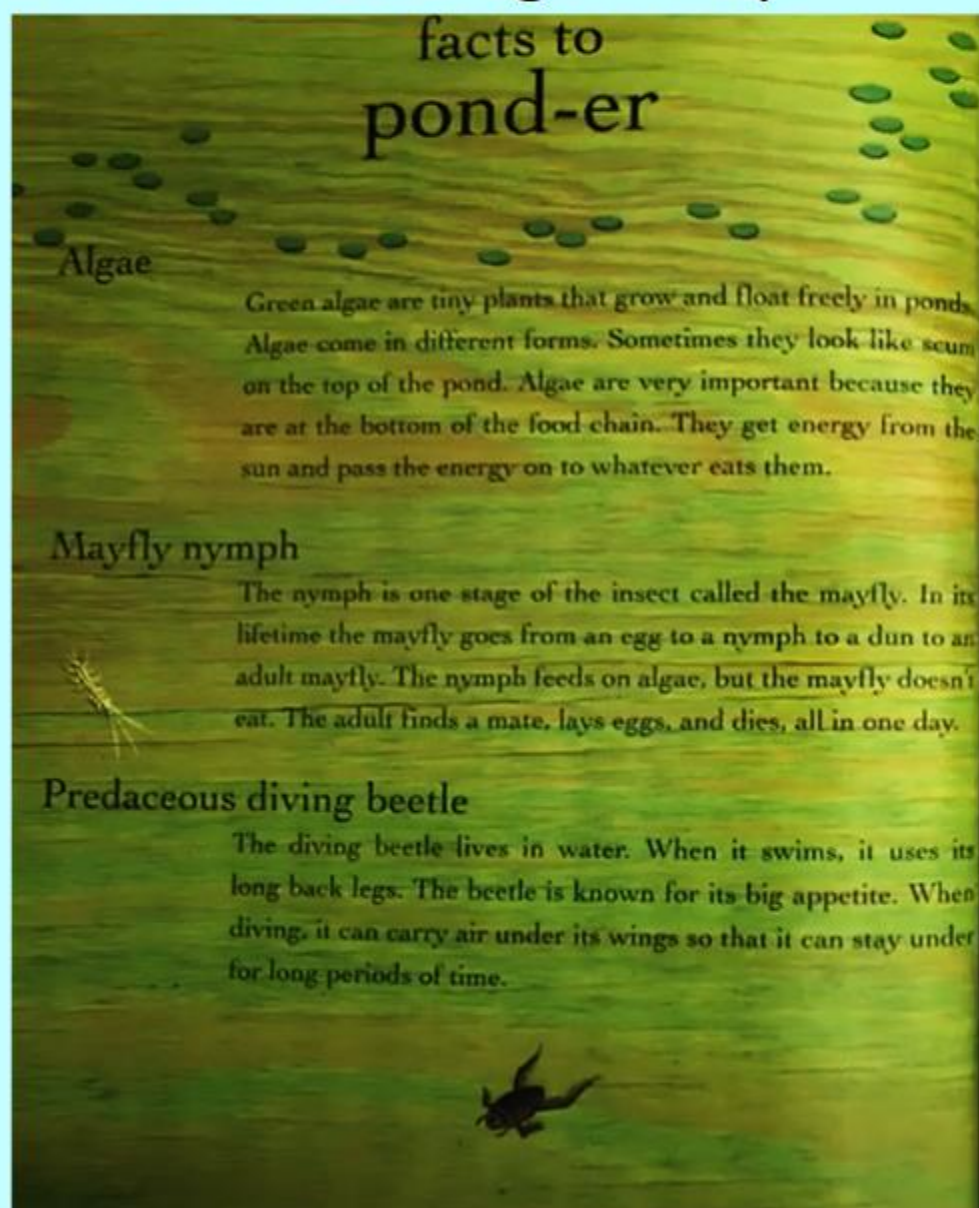 facts to
pond-er
Algae
Green algae are tiny plants that grow and float freely in ponds.
Algae come in different forms. Sometimes they look like scum
on the top of the pond. Algae are very important because they
are at the bottom of the food chain. They get energy from the
sun and pass the energy on to whatever eats them.
Mayfly nymph
The nymph is one stage of the insect called the mayfly. In its
lifetime the mayfly goes from an egg to a nymph to a dun to an
adult mayfly. The nymph feeds on algae, but the mayfly doesn't
eat. The adult finds a mate, lays eggs, and dies, all in one day.
Predaceous diving beetle
The diving beetle lives in water. When it swims, it uses its
long back legs. The beetle is known for its big appetite. When
diving, it can carry air under its wings so that it can stay under
for long periods of time.